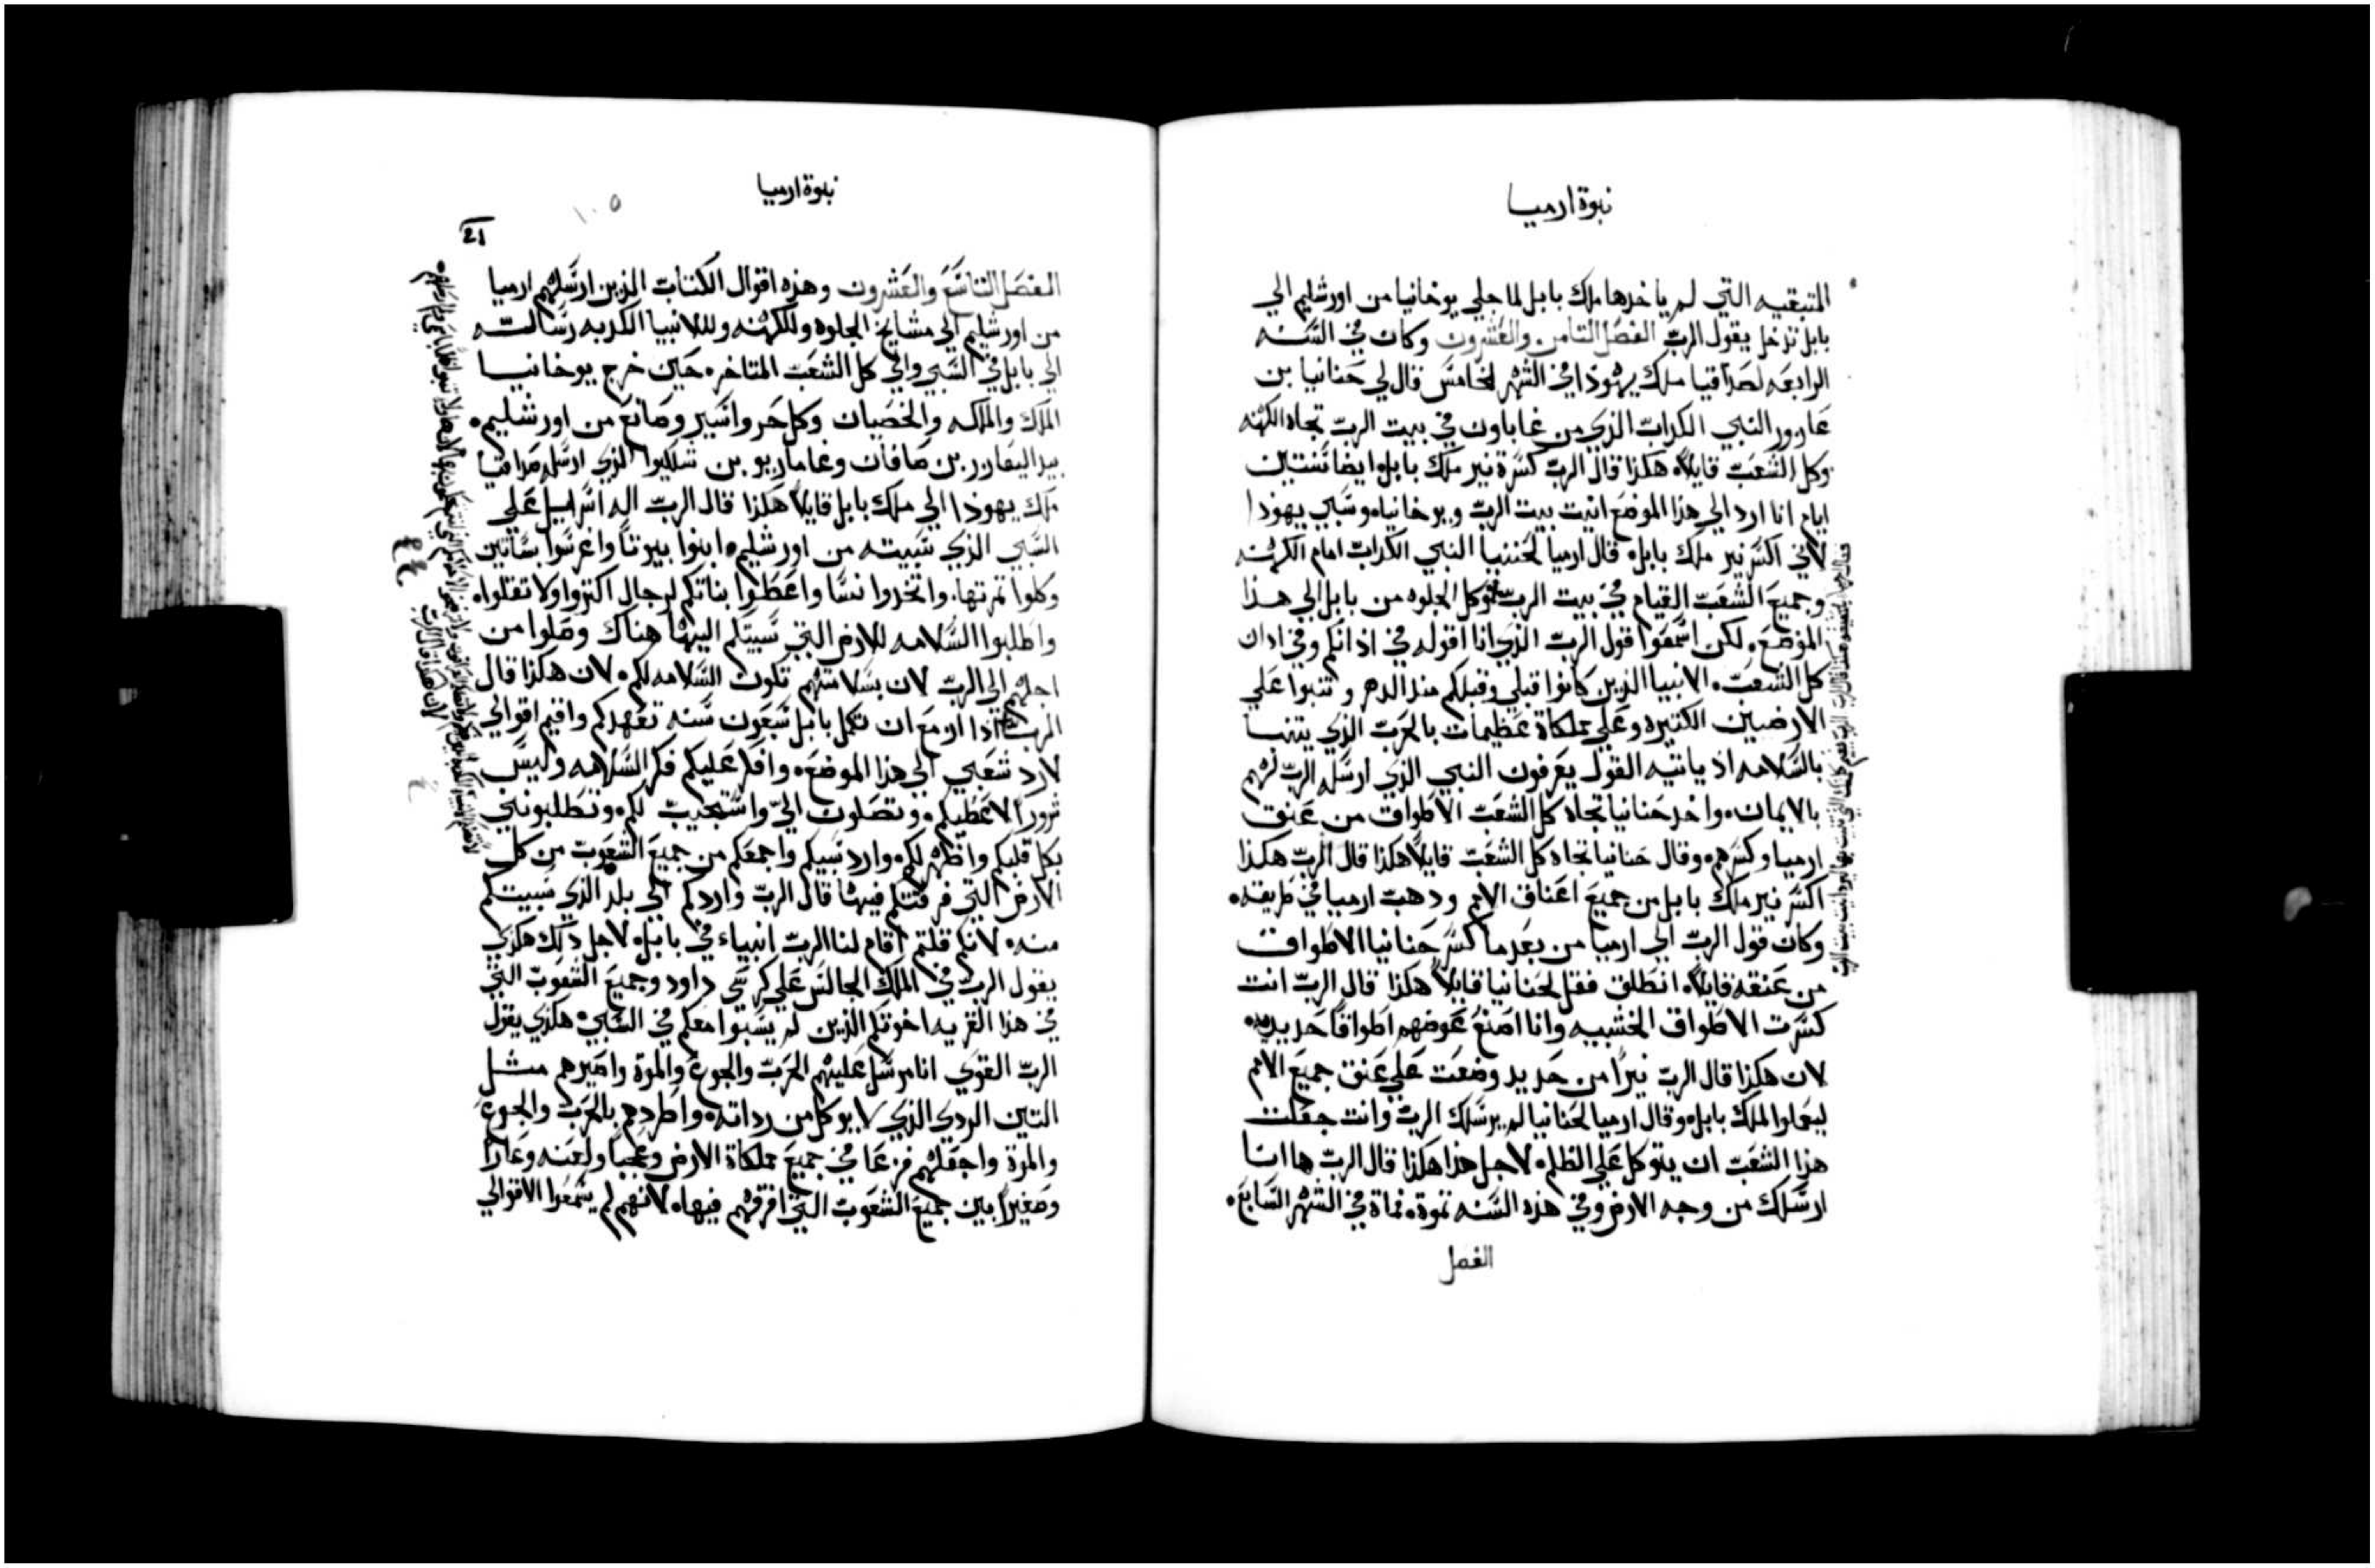 نبوة ارميا
المتبقيه التي لم ياخدها ملك بابل لما جلي يوخانيا من اورشليم الي
بابل تدخل يقول الربّ الفصَل التامن والعَشرون وكان في السَنه
الرابعَه لصَداقيا ملك يهودا في الشهر الخامسَ قال لي حَنانيا بن
عَازور النبي الكدابّ الذي من غاباون في بيت الربّ تجاه الكهنه
وكل الشعَبّ قايلاً هكذا قال الربّ كسَرة نير ملك بابل وايضا سَنتين
ايام انا ارد الي هذا الموضع انيت بيت الربّ ويوخانيا وسَبي يهودا
لاني اكسَر نير ملك بابل قال ارميا لحَننيا النبي الكدابّ امام الكهنه
وجميعَ الشعَبّ القيام في بيت الربّ وكل الجلوه من بابل الي هدا
الموضعَ لكن اسَمعَوا قول الربّ الذي انا اقوله في اذانكم وفي ادان
كل الشعَبّ الانبيا الذين كانوا قبلي وقبلكم منذ الدهر وتنبوا عَلي
الارضين الكتيره وعَلي مملكاة عَظيمات بالحَربّ الذي يتنبا
بالسَلامه اذ ياتيه القول يعَرفون النبي الذي ارسَله الربّ لهم
بالايمان واخد حَنانيا تجاه كل الشعَبّ الاطواق من عَنق
ارميا وكسَرهم وقال حَنانيا تجاه كل الشعَبّ قايلاً هكذا قال الربّ هكذا
اكسَر نير ملك بابل من جميعَ اعَناق الامم ودهبّ ارميا في طريقه
وكان قول الربّ الي ارميا من بعَد ما كسَر حَنانيا الاطواق
من عَنقه قايلاً انطلق فقل لحَنانيا قايلاً هكذا قال الربّ انت
كسَرت الاطواق الخشبيه وانا اصَنعُ عَوضهم اطواقًا حَديديه
لان هكذا قال الربّ نيرًا من حَديد وضعَت عَلي عَنق جميعَ الامم
ليعَملوا لملك بابل وقال ارميا لحَنانيا لم يرسَلك الربّ وانت جعَلت
هذا الشعَبّ ان يتوكل عَلي الظلم لاجل هذا هكذا قال الربّ ها انا
ارسَلك من وجه الارض وفي هذه السَنه تموة فماة في الشهر السَابعَ
الفصل
نبوة ارميا
١٠٥
21
الفصَل التاسَعَ والعَشرون وهذه اقوال الكتابّ الذين ارسَلهم ارميا
من اورشليم الي مشايخ الجلوه وللكهنه وللانبيا الكدبه رسَالته
الي بابل في السَبي والي كل الشعَبّ المتاخره حَين خرج يوخانيا
الملك والملكه والخصَيان وكل حَر واسَير وصَانعَ من اورشليم
بيد اليعَازر بن صَافان وغاماريو بن شلكيوا الذي ارسَله صَداقيا
ملك يهودا الي ملك بابل قايلاً هكذا قال الربّ اله اسَراييل عَلي
السَبي الذي سَبيته من اورشليم ابنوا بيوتاً واغرسَوا بسَاتين
وكلوا تمرتها واتخدوا نسَا واعَطوا بناتكم لرجال اكتروا ولا تقلوا
واطلبوا السَلامه للارض التي سَبيتكم اليها هناك وصَلوا من
اجلهم الي الربّ لان بسَلامتهم تكون السَلامه لكم لان هكذا قال
الربّ اذا ازمعَ ان تكمل بابل سَبعَون سَنه تعَهدكم واقيم اقوالي
لارد شعَبي الي هذا الموضعَ وافكر عَليكم فكر السَلامه وليسَ
شرورًا لاعَطيكم وتصَلون اليّ واسَتجيبّ لكم وتطلبونني
بكل قلبكم واظهر لكم وارد سَبيكم واجمعَكم من جميعَ الشعَوبّ من كل
الارض التي فرقتكم فيها قال الربّ واردكم الي بلد الذي سَبيتكم
منه لانكم قلتم اقام لنا الربّ انبياء في بابل لاجل ذلك هكذي
يقول الربّ في الملك الجالسَ عَلي كرسَي داود وجميعَ الشعَوبّ التي
في هذا القريه اخوتكم الذين لم يسَبوا معَكم في السَبي هكذي يقول
الربّ القوي انا مرسَل عَليهم الحَربّ والجوعَ والموة واصَيرهم مثل
التين الردي الذي لا يوكل من رداته واطردهم بالحَربّ والجوعَ
والموة واجعَلهم فزعَا في جميعَ مملكاة الارض وعَجباً ولعَنه وعَارًا
وصَفيرًا بين جميعَ الشعَوبّ التي افرقهم فيها لانهم لم يسَمعَوا الاقوالي